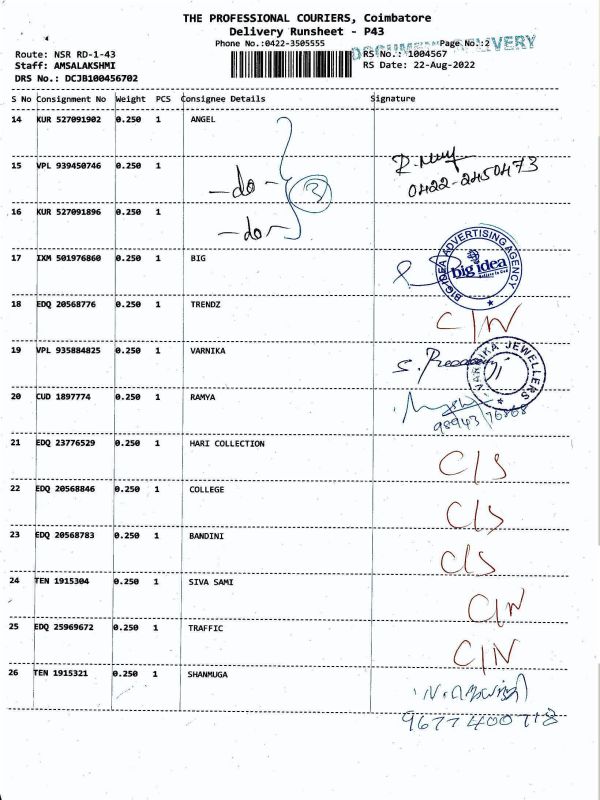 THE PROFESSIONAL COURIERS, Coimbatore
Delivery Runsheet - P43
Phone No.:0422-3505555 Page No.:2
DOCUMENT DELIVERY
Route: NSR RD-1-43 RS No.: 1004567
Staff: AMSALAKSHMI RS Date: 22-Aug-2022
DRS No.: DCJB100456702
S No Consignment No Weight PCS Consignee Details Signature
14 KUR 527091902 0.250 1 ANGEL
15 VPL 939450746 0.250 1 -do- 3
0422-2450473
16 KUR 527091896 0.250 1 -do-
17 IXM 501976860 0.250 1 BIG
BIG IDEA ADVERTISING AGENCY
big idea
18 EDQ 20568776 0.250 1 TRENDZ C/N
19 VPL 935884825 0.250 1 VARNIKA
VARNIKA JEWELLERS
20 CUD 1897774 0.250 1 RAMYA
98943/76868
21 EDQ 23776529 0.250 1 HARI COLLECTION C/S
22 EDQ 20568846 0.250 1 COLLEGE C/S
23 EDQ 20568783 0.250 1 BANDINI C/S
24 TEN 1915304 0.250 1 SIVA SAMI C/N
25 EDQ 25969672 0.250 1 TRAFFIC C/N
26 TEN 1915321 0.250 1 SHANMUGA